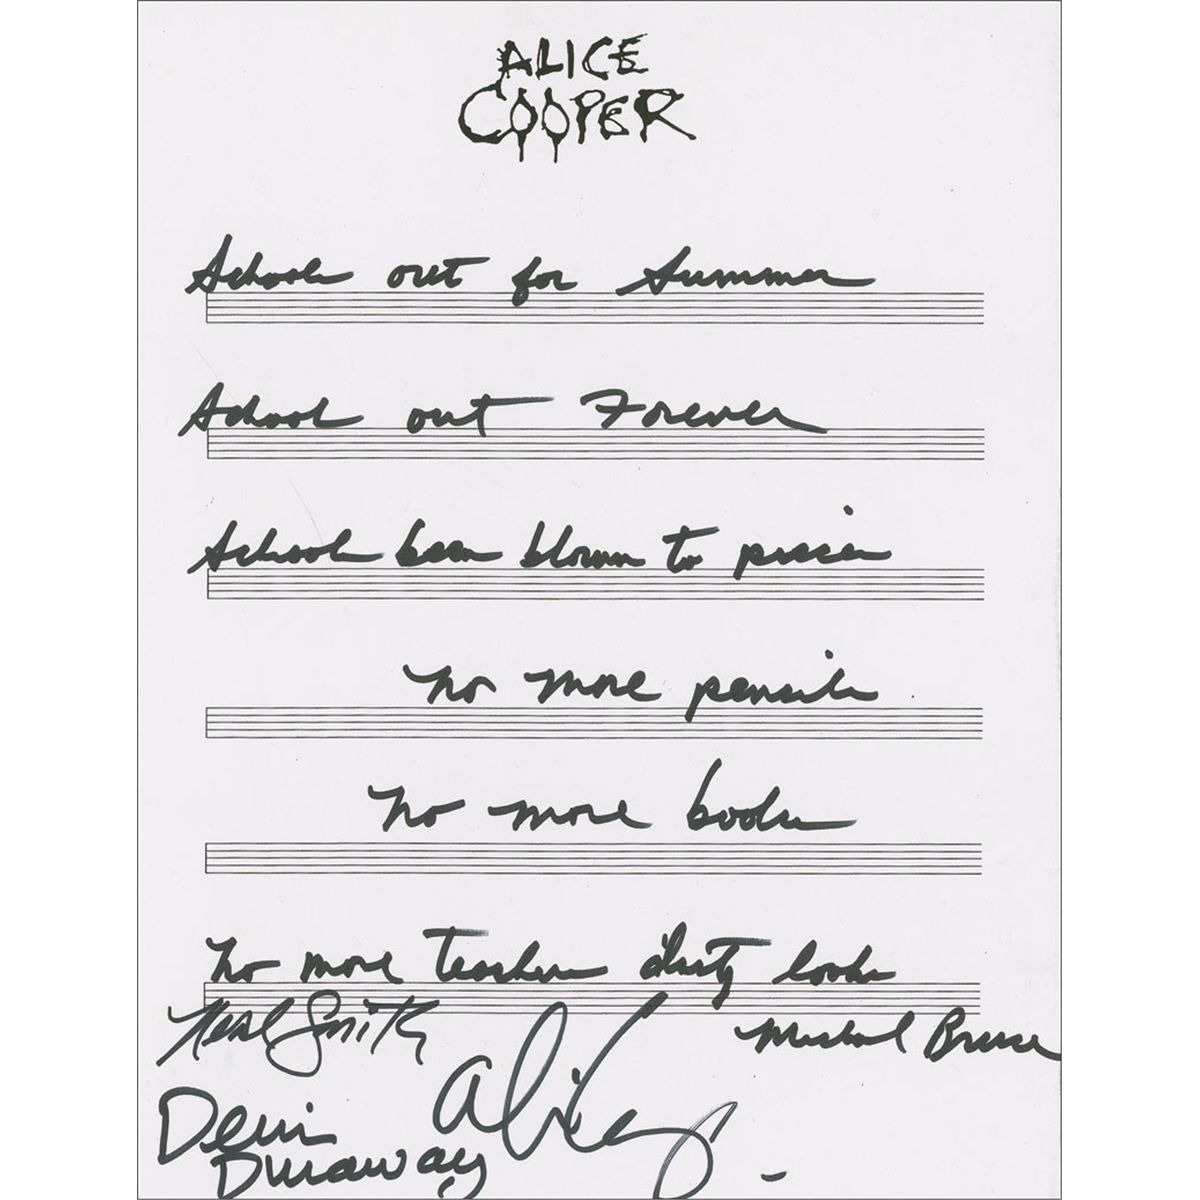 ALICE
COOPER
Schools out for Summer
School out Forever
School been blown to pieces
No more pencils
No more books
No more Teachers dirty looks
Neal Smith
Michael Bruce
Alice Cooper
Dennis
Dunaway